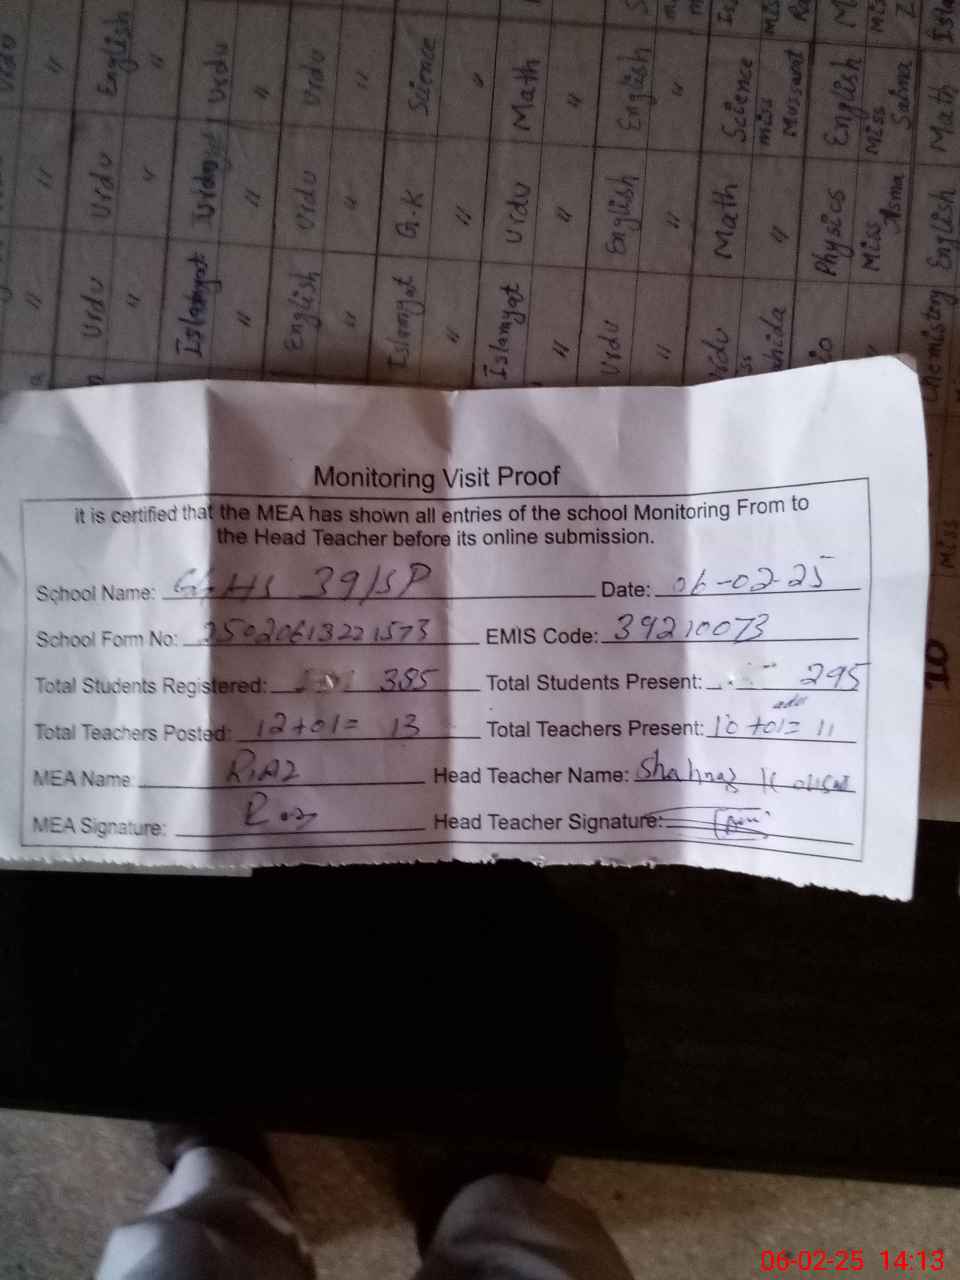 Monitoring Visit Proof
it is certified that the MEA has shown all entries of the school Monitoring From to
the Head Teacher before its online submission.
School Name: GGHS 39/SP Date: 06-02-25
School Form No: 2502061322 1573 EMIS Code: 39210073
Total Students Registered: 385 Total Students Present: 295
Total Teachers Posted: 12+01= 13 Total Teachers Present: 10 +01= 11
MEA Name RIAZ Head Teacher Name: Shahnaz
MEA Signature: Head Teacher Signature:
English Urdu Urdu Science Math English Science English Math
" " " " " " miss Miss
Mussarat Saima
Urdu Urdu Urdu G.K Urdu English Math Physics English
" " " " " " " Miss
Asma
Urdu Islamyat English Islamyat Islamyat Urdu Urdu Chemistry
" " " " " "
Miss
10
06-02-25 14:13